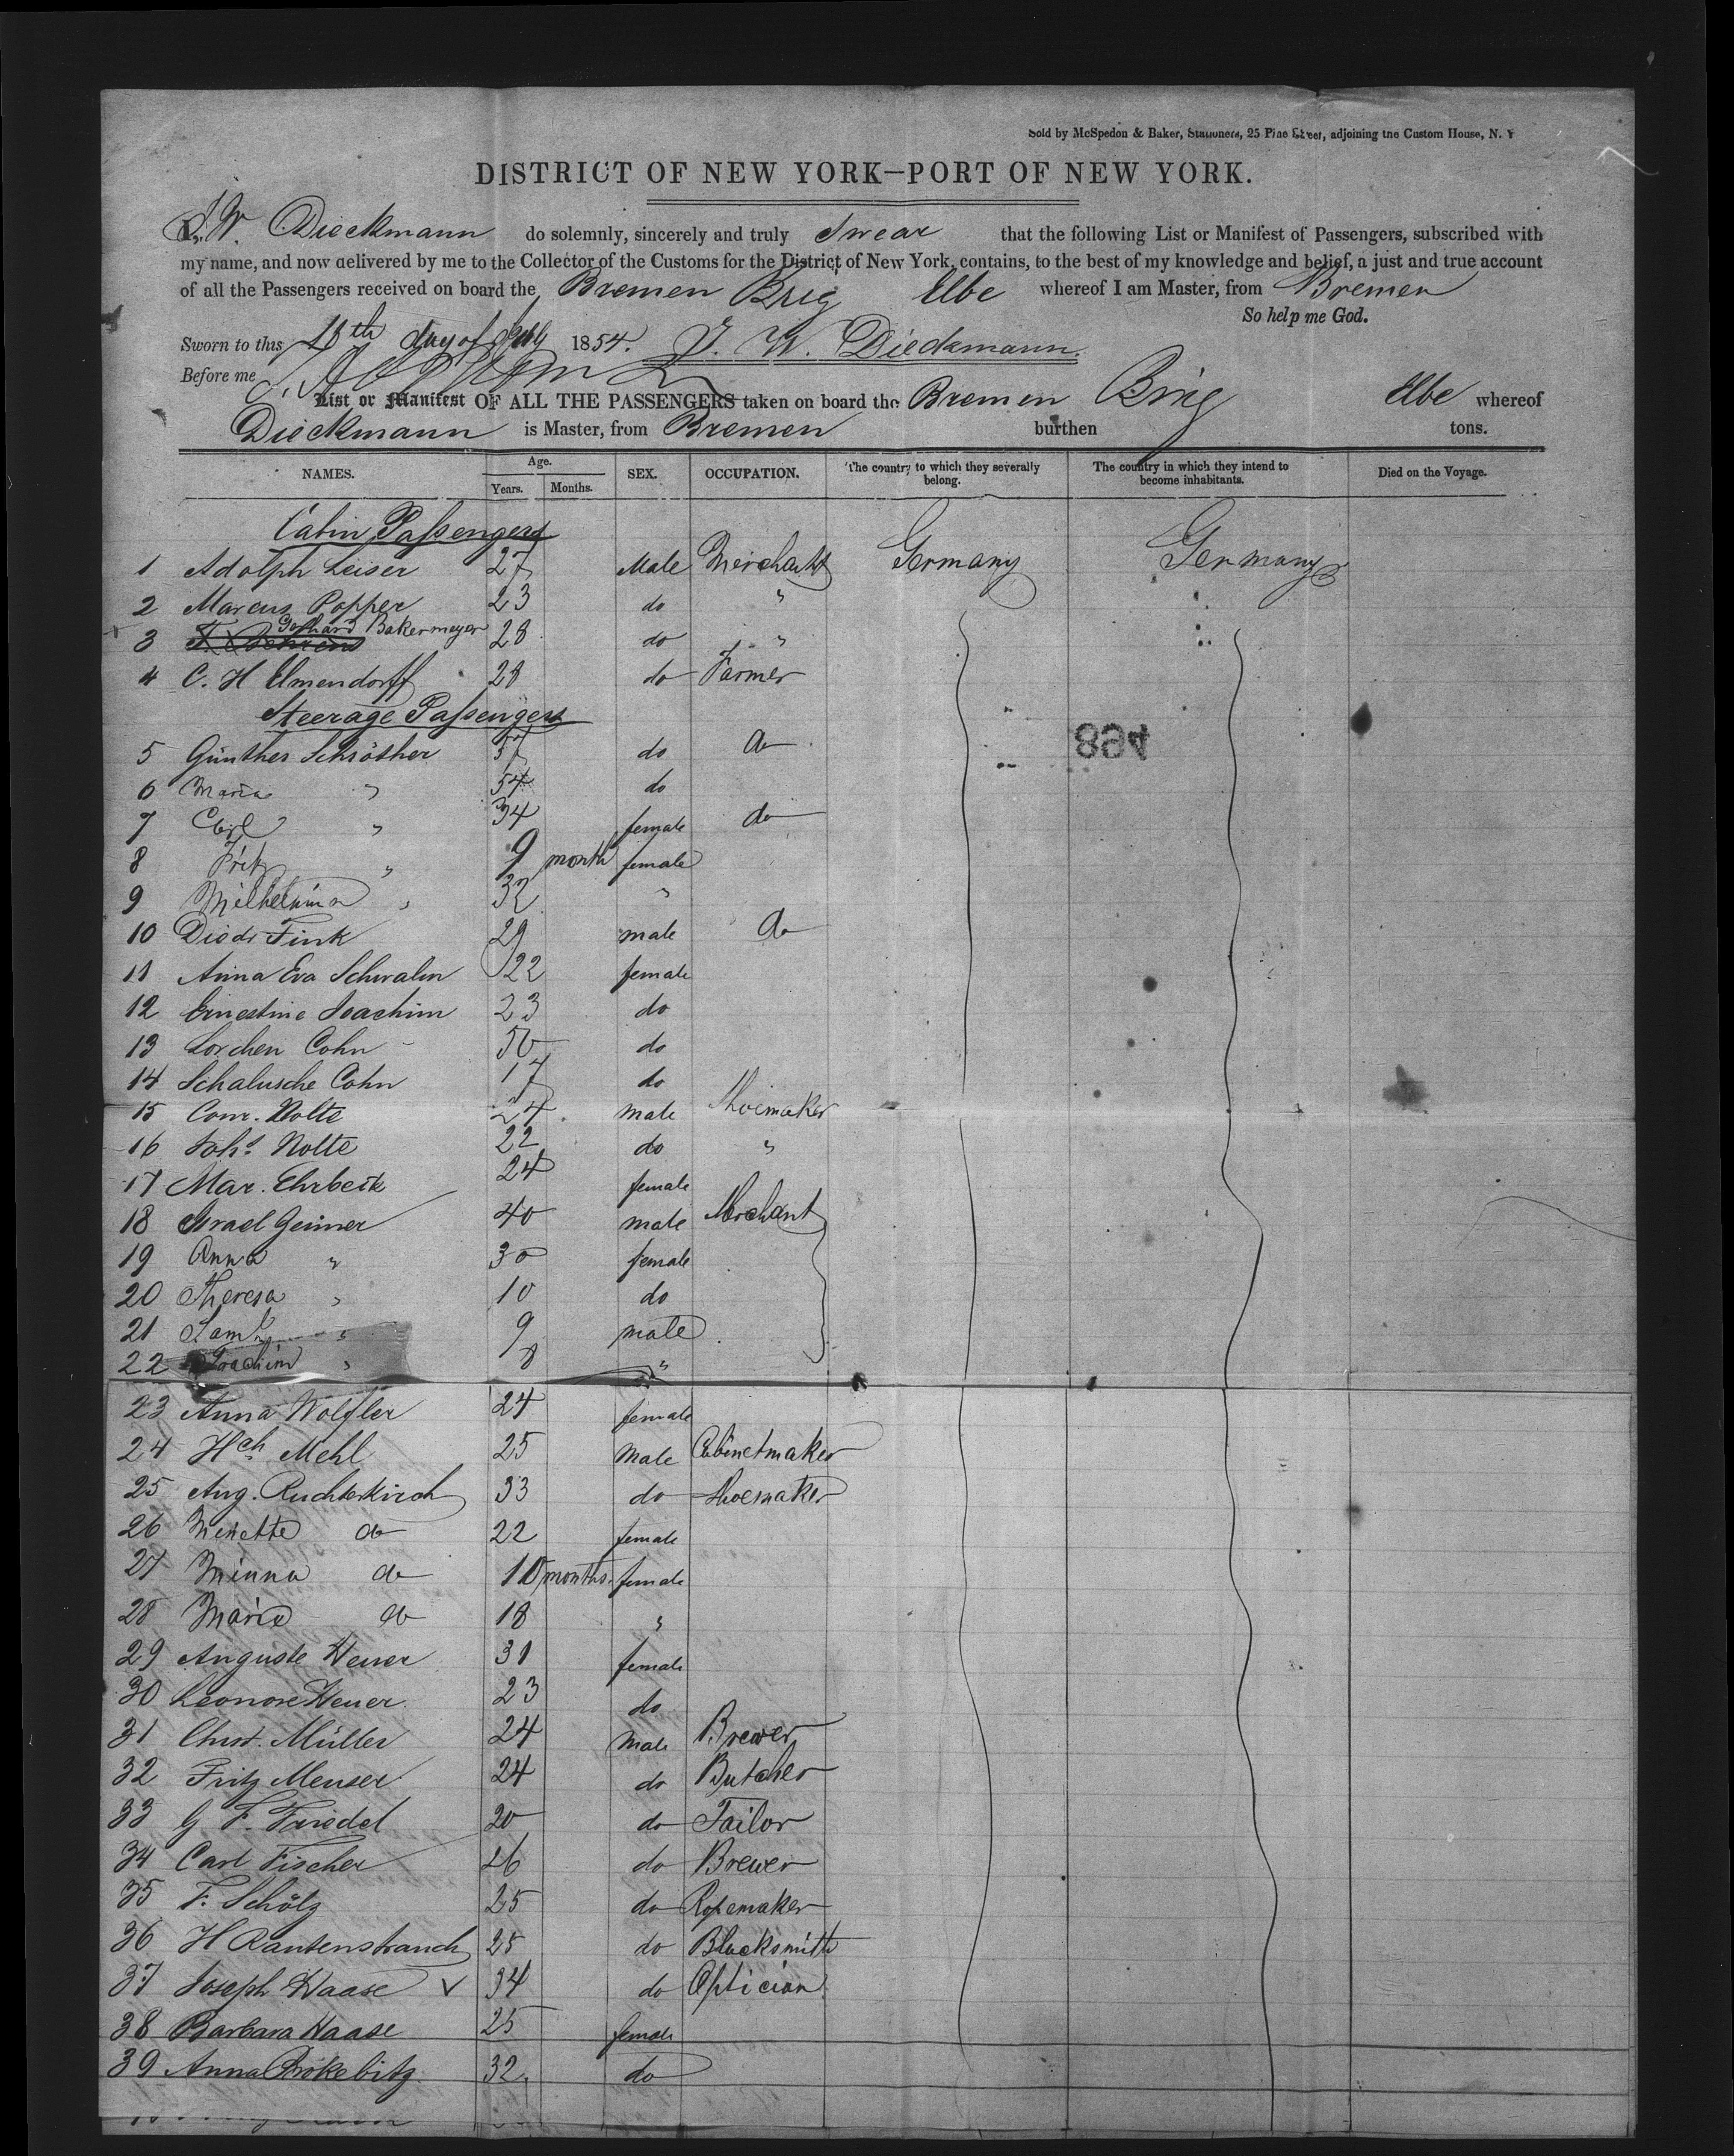 Sold by McSpedon & Baker, Stationers, 25 Pine Street, adjoining the Custom House, N. Y
DISTRICT OF NEW YORK—PORT OF NEW YORK.
I, J. W. Dieckmann do solemnly, sincerely and truly Swear that the following List or Manifest of Passengers, subscribed with
my name, and now delivered by me to the Collector of the Customs for the District of New York, contains, to the best of my knowledge and belief, a just and true account
of all the Passengers received on board the Bremen Brig Elbe whereof I am Master, from Bremen
So help me God.
Sworn to this day of July 1854. J. W. Dieckmann.
Before me
List or Manifest OF ALL THE PASSENGERS taken on board the Bremen Brig Elbe whereof
Dieckmann is Master, from Bremen burthen tons.
NAMES. Age. Years. Months. SEX. OCCUPATION. The country to which they severally belong. The country in which they intend to become inhabitants. Died on the Voyage.
Cabin Passengers
1 Adolph Leiser 27 Male Merchant Germany Germany
2 Marcus Popper 23 do "
3 Gerhard Bakermeyer 28 do "
4 C. H Elmendorff 28 do Farmer
Steerage Passengers
5 Günther Schröther 57 do do
894
6 Maria " 54 do
7 Carl " 34 female do
8 Fritz " 9 month female
9 Wilhelmina " 32 "
10 Diedr Fink 29 male do
11 Anna Eva Schwalm 22 female
12 Ernestine Joachim 23 do
13 Lorchen Cohn 50 do
14 Schalusche Cohn 17 do
15 Conr. Nolte 24 male Shoemaker
16 Johs Nolte 22 do "
17 Mar. Ehrbeck 24 female
18 Israel Geimer 40 male Merchant
19 Anna " 30 female
20 Theresa " 10 do
21 Saml " 9 male
22 Joachim " 8 "
23 Anna Wölfler 24 female
24 Hch Mehl 25 Male Cabinetmaker
25 Aug. Ruchterkirch 33 do Shoemaker
26 Nenette do 22 female
27 Minna do 10 months female
28 Marie do 18 "
29 Auguste Heuer 31 female
30 Leonore Heuer 23 do
31 Christ. Müller 24 Male Brewer
32 Fritz Meuser 24 do Butcher
33 G F. Friedel 20 do Tailor
34 Carl Fischer 26 do Brewer
35 F. Schölz 25 do Ropemaker
36 H Rautenstrauch 25 do Blacksmith
37 Joseph Haase 34 do Optician
38 Barbara Haase 25 female
39 Anna 32 do